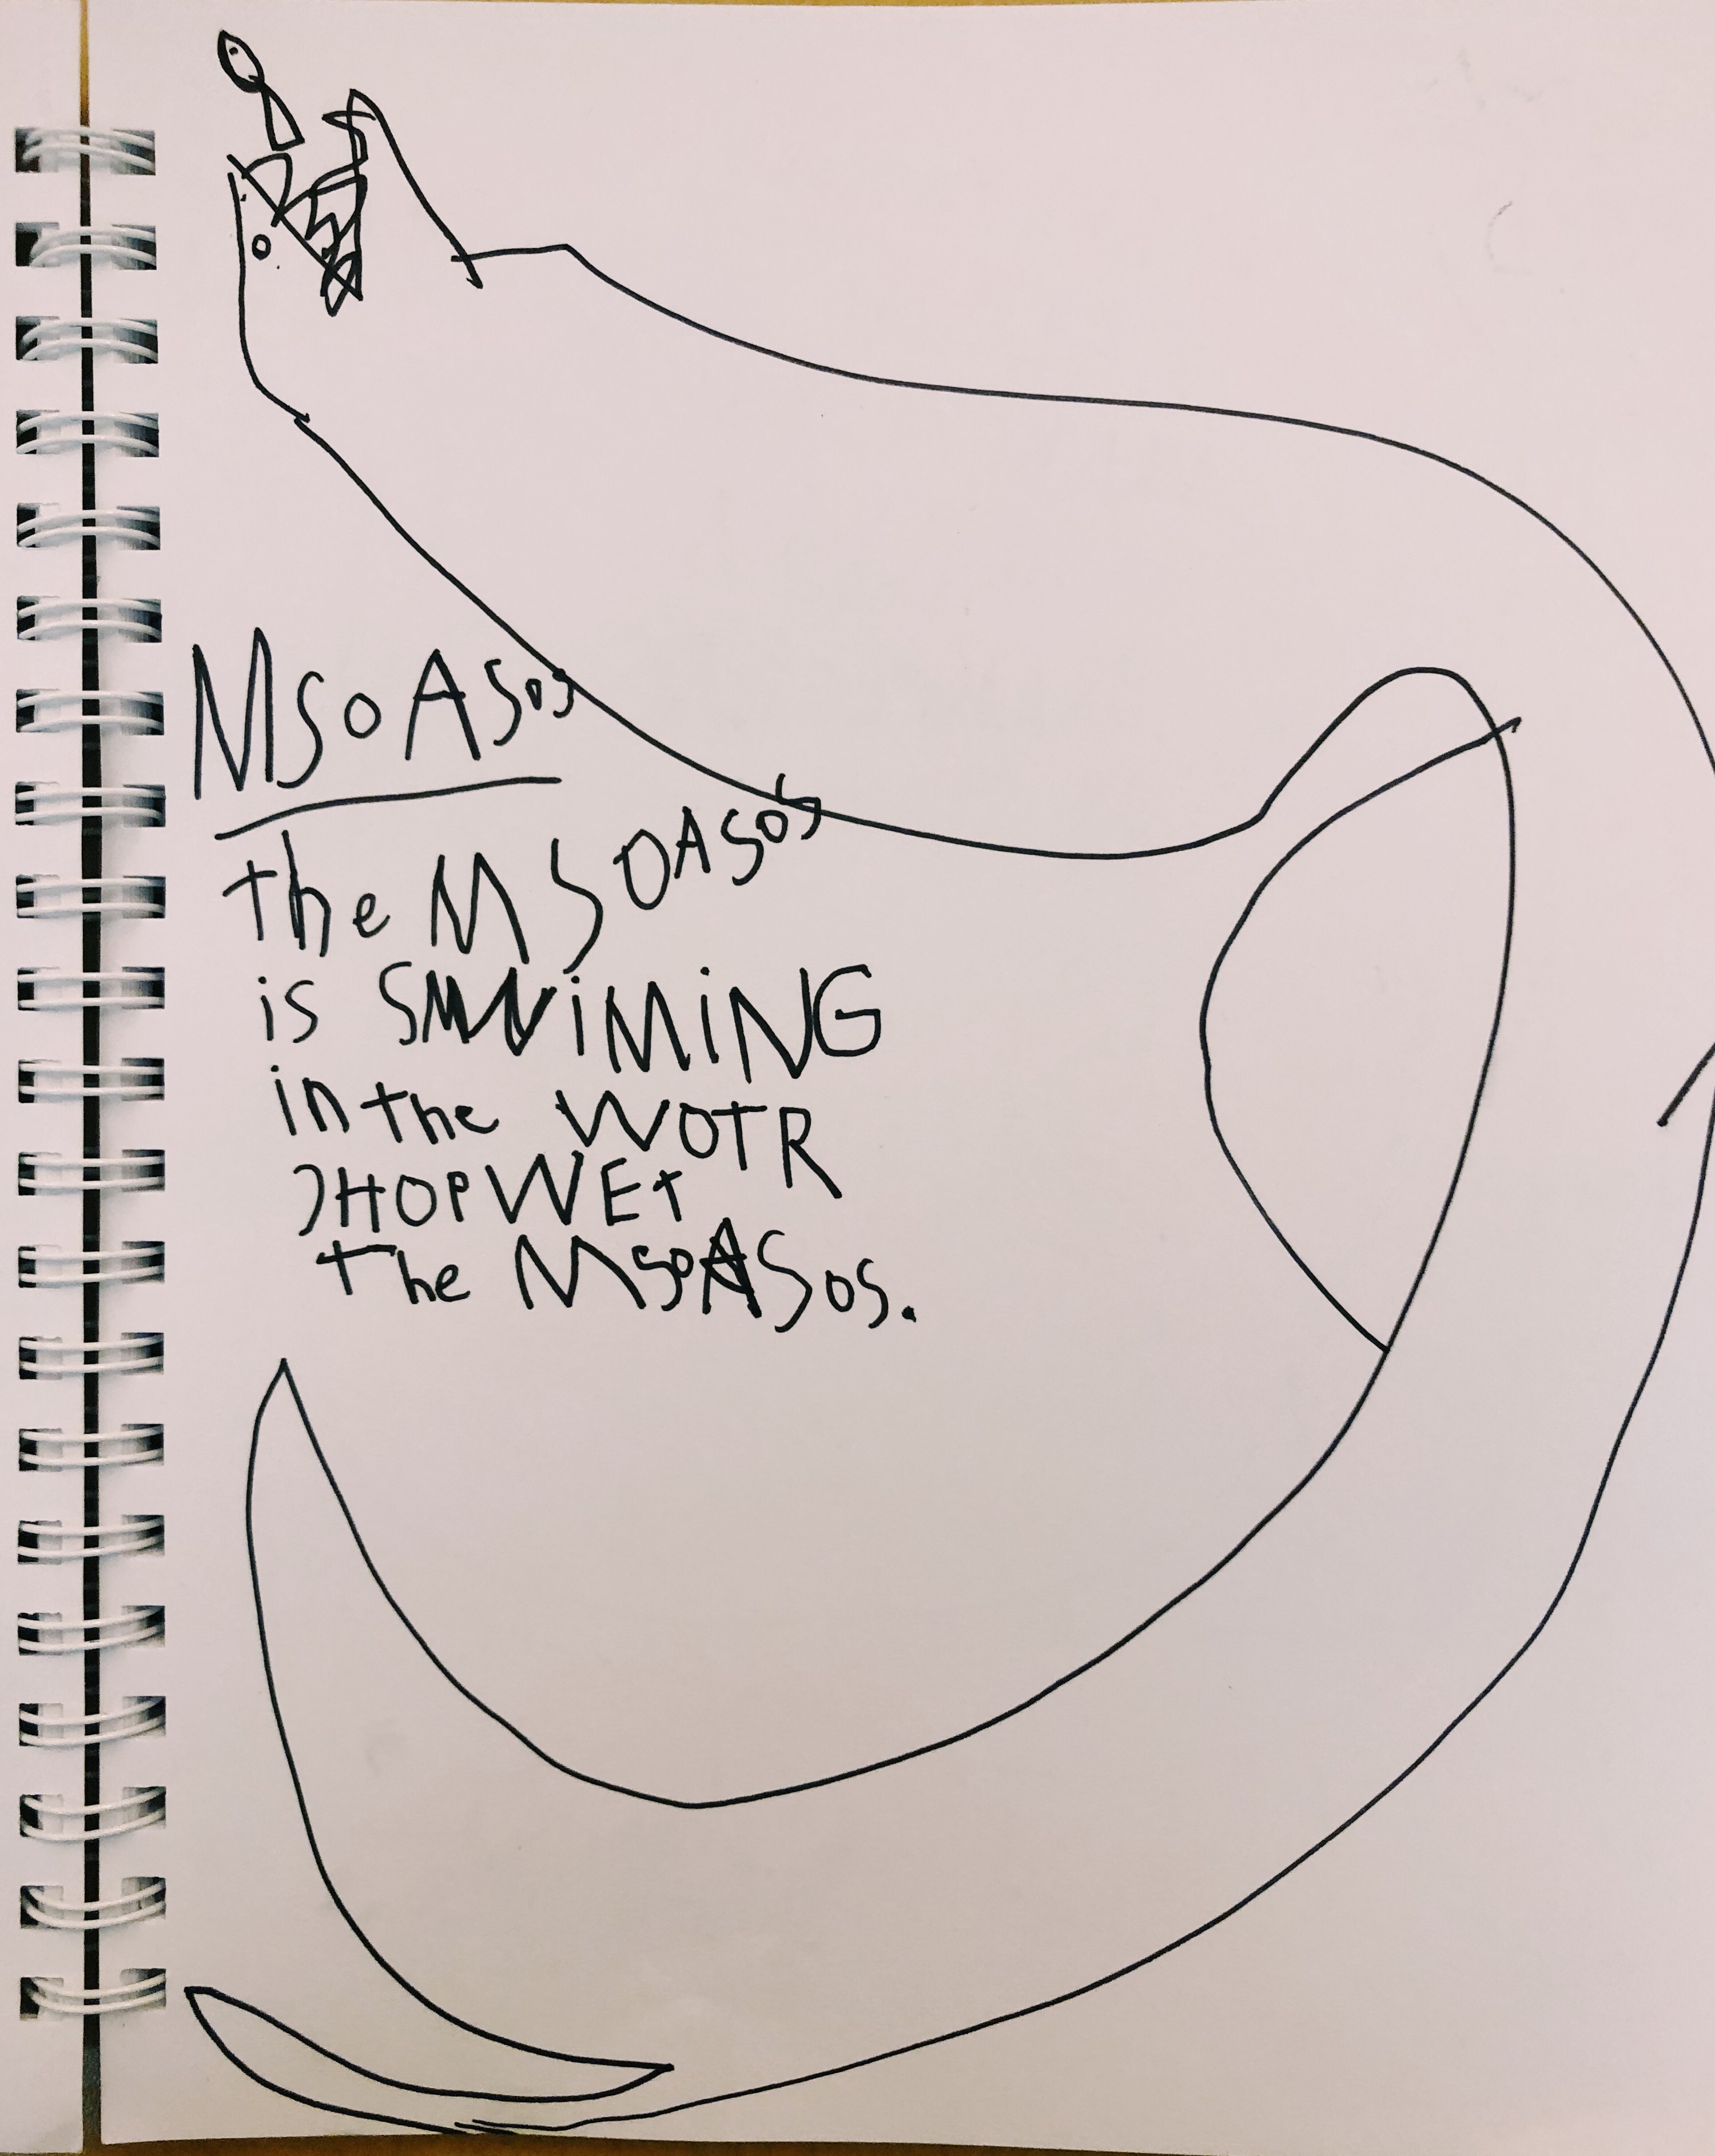 MSOASOS
the MSOASOS
is SWiMiNG
in the WOTR
JHOPWEt
the MSOASOS.